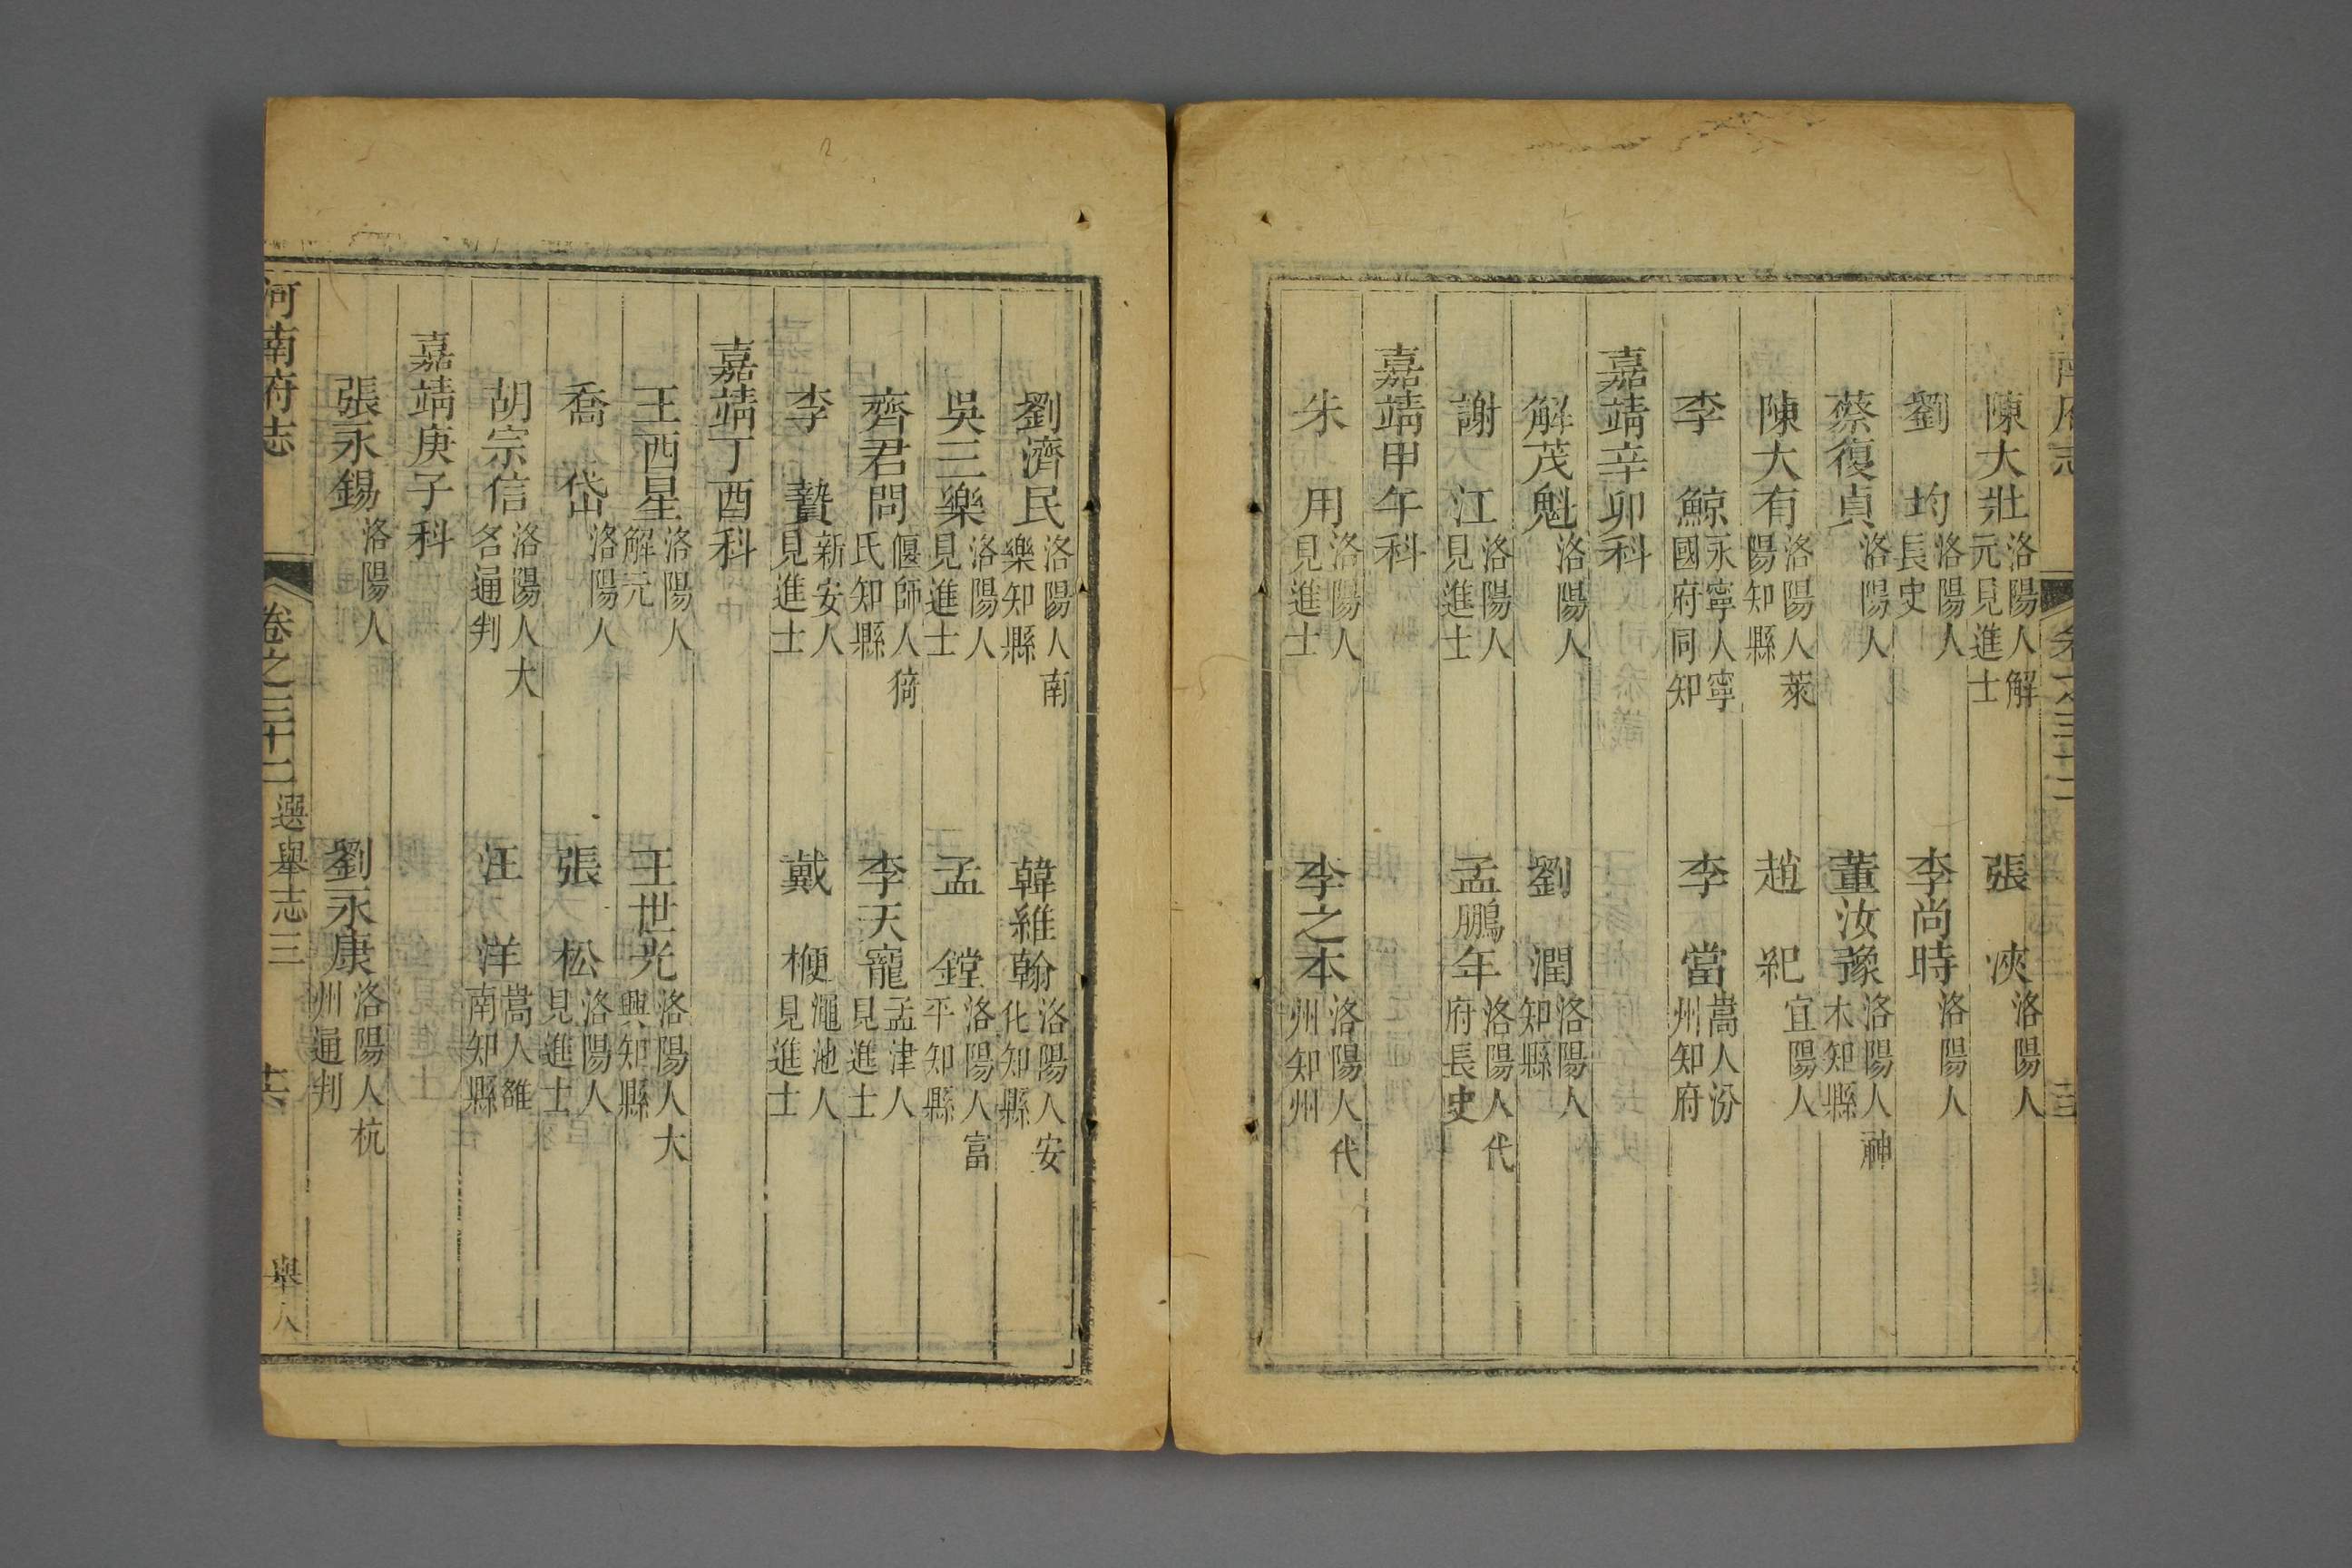 陳大壯 洛陽人解元見進士 張浹 洛陽人
劉均 洛陽人長史 李尚時 洛陽人
蔡復貞 洛陽人 董汝豫 洛陽人神木知縣
陳大有 洛陽人萊陽知縣 趙紀 宜陽人
李鯨 永寧人寧國府同知 李當 嵩人汾州知府
嘉靖辛卯科
解茂魁 洛陽人 劉潤 洛陽人知縣
謝江 洛陽人見進士 孟鵬年 洛陽人代府長史
嘉靖甲午科
朱用 洛陽人見進士 李之本 洛陽人代州知州
劉濟民 洛陽人南樂知縣 韓維翰 洛陽人安化知縣
吳三樂 洛陽人見進士 孟鏜 洛陽人富平知縣
齊君問 偃師人猗氏知縣 李天寵 孟津人見進士
李贄 新安人見進士 戴楩 澠池人見進士
嘉靖丁酉科
王西星 洛陽人解元 王世光 洛陽人大興知縣
喬岱 洛陽人 張松 洛陽人見進士
胡宗信 洛陽人大名通判 汪洋 嵩人雒南知縣
嘉靖庚子科
張永錫 洛陽人 劉永康 洛陽人杭州通判
河南府志 卷之三十二 選舉志三 舉人